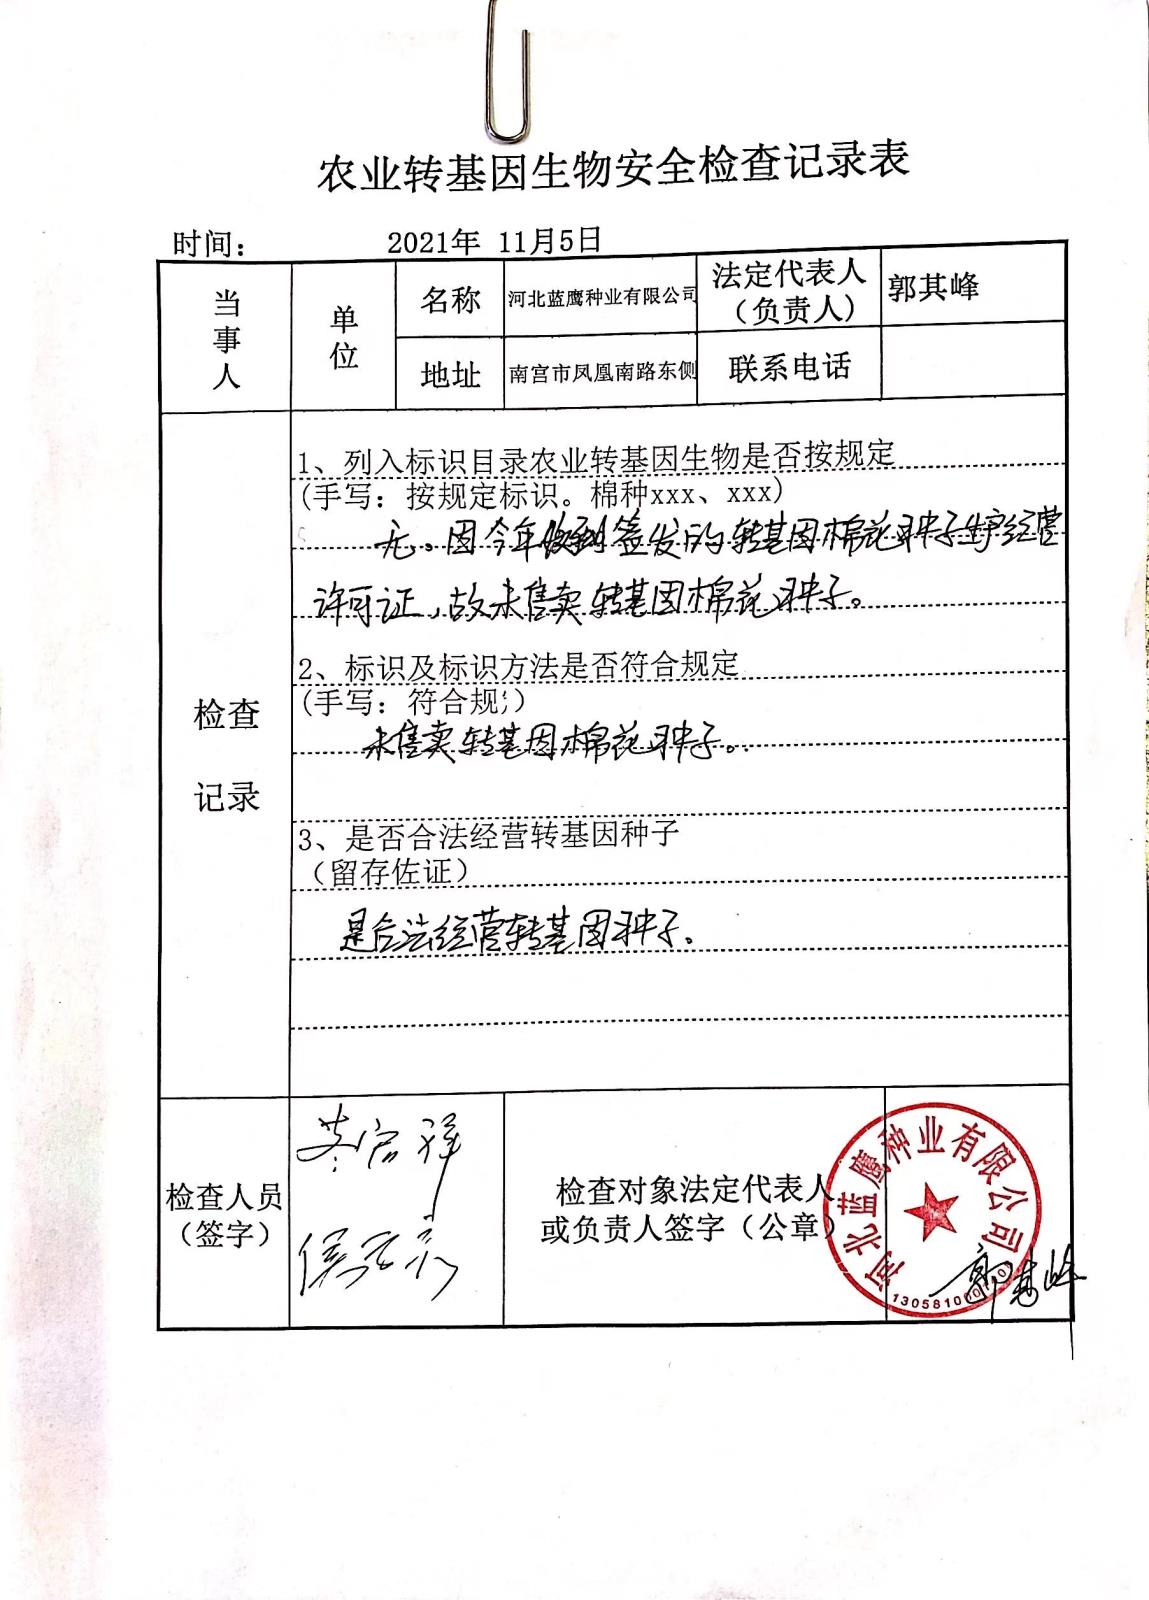 农业转基因生物安全检查记录表
时间： 2021年 11月5日
当事人 单位 名称 河北蓝鹰种业有限公司 法定代表人（负责人） 郭其峰
地址 南宫市凤凰南路东侧 联系电话
检查记录
1、列入标识目录农业转基因生物是否按规定
(手写：按规定标识。棉种xxx、xxx)
无。因今年收到签发的转基因棉花种子生产经营
许可证，故未售卖转基因棉花种子。
2、标识及标识方法是否符合规定
(手写：符合规）
未售卖转基因棉花种子。
3、是否合法经营转基因种子
（留存佐证）
是合法经营转基因种子。
检查人员（签字）
检查对象法定代表人
或负责人签字（公章）
河北蓝鹰种业有限公司
郭其峰